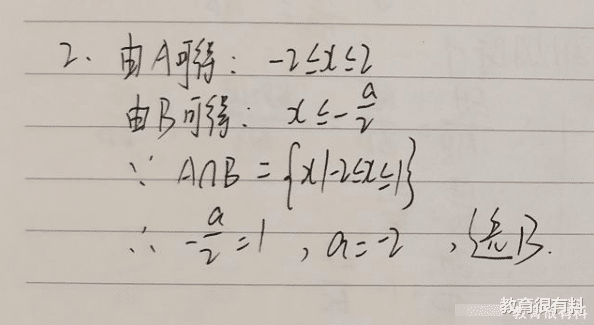 2. 由A可得: -2≤x≤2
由B可得: x≤-a/2
∵ A∩B={x|-2≤x≤1}
∴ -a/2=1, a=-2, 选B.
教育很有料
教育很有料